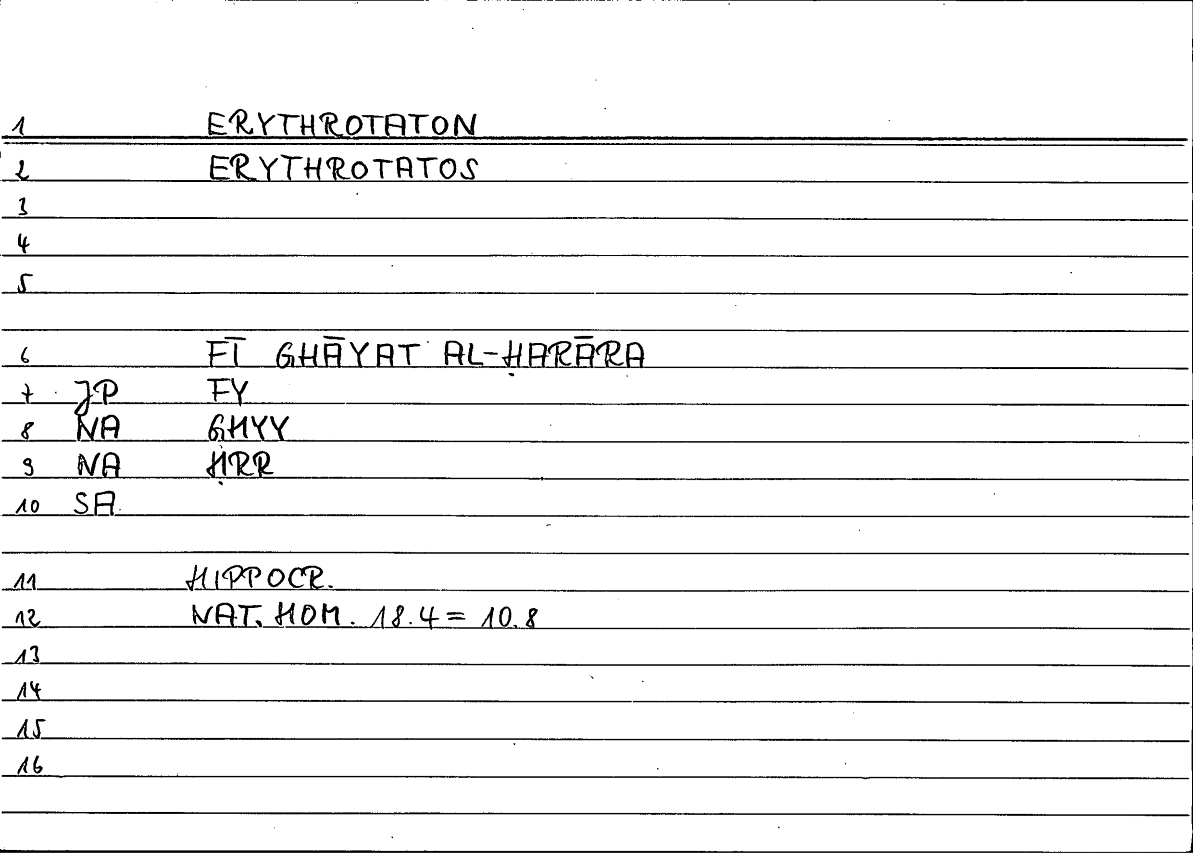 1 ERYTHROTATON
2 ERYTHROTATOS
3
4
5
6 FĪ GHĀYAT AL-ḤARĀRA
7 JP FY
8 NA GHYY
9 NA ḤRR
10 SA
11 HIPPOCR.
12 NAT. HOM. 18.4 = 10.8
13
14
15
16